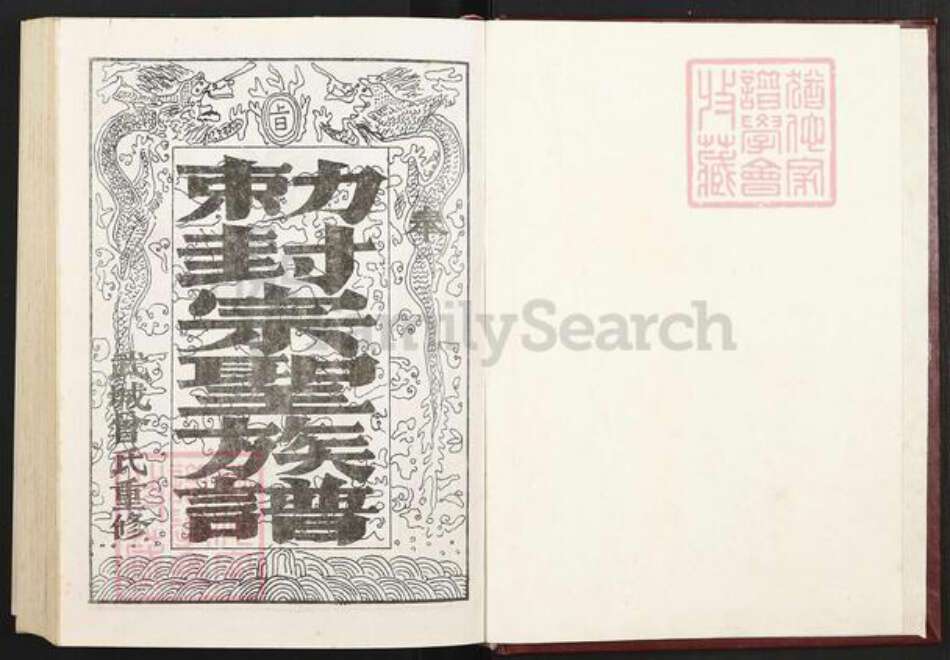 猶他家
譜學會
收藏
旨
奉
勅封宗聖族譜
武城曾氏重修
FamilySearch